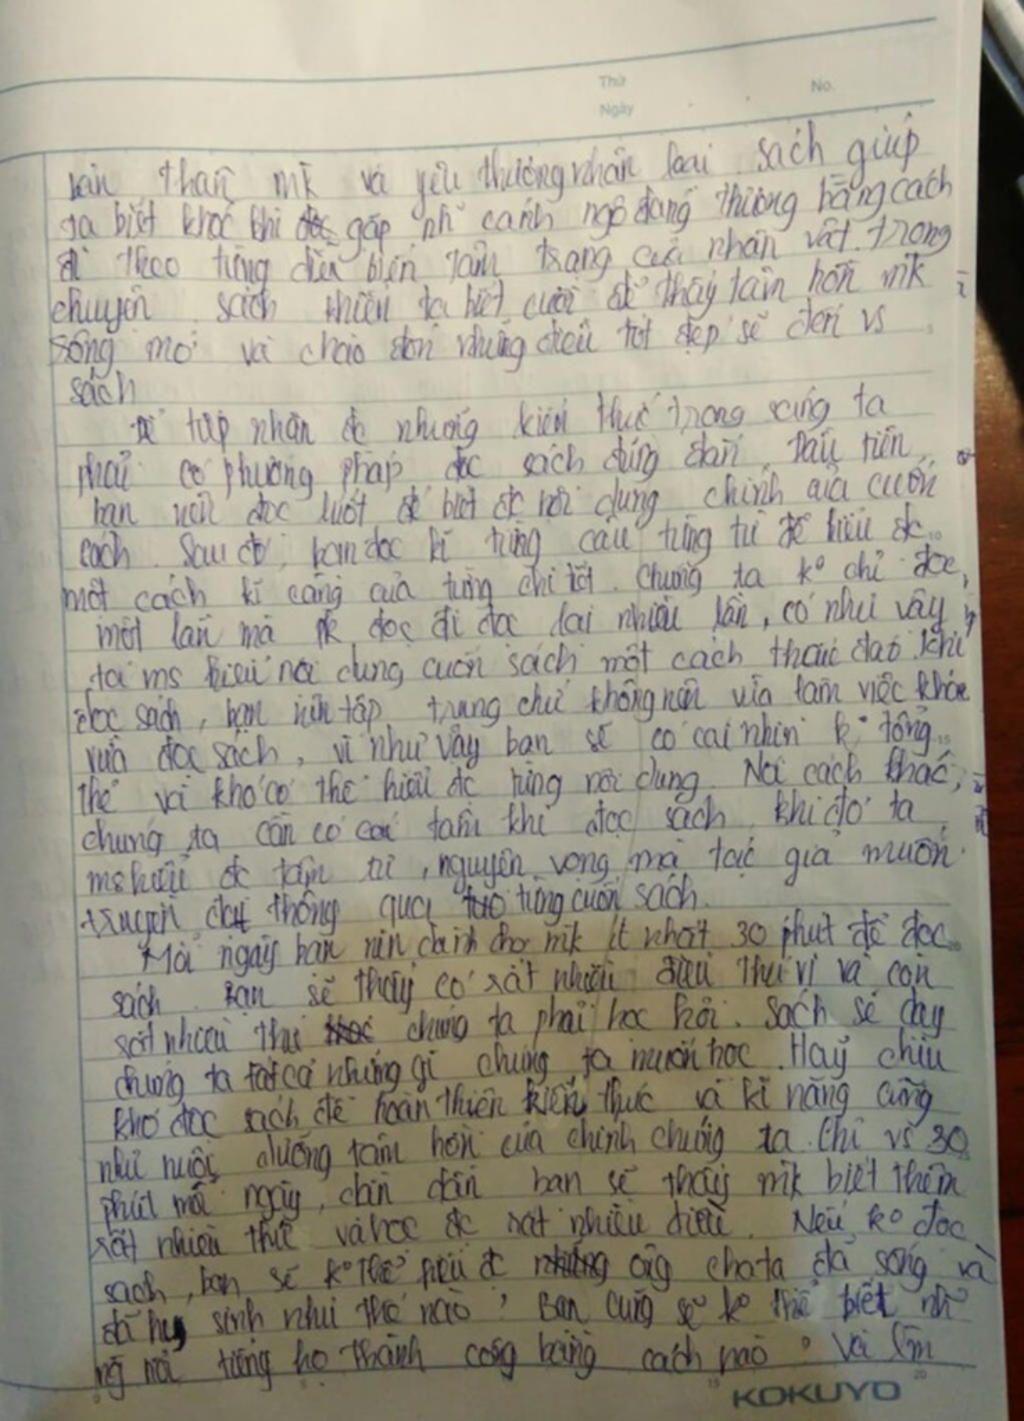 Thứ
No.
Ngày
bản thân mk và yêu thương nhân loại. sách giúp
ta biết khóc khi gặp nh~ cảnh ngộ đáng thương bằng cách
đi theo từng diễn biến tâm trạng của nhân vật trong
chuyện. sách khiến ta biết cười để thấy tâm hồn mk
sống mơ và chào đón những điều tốt đẹp sẽ đến vs
sách
Để tiếp nhận đc những kiến thức trong sách ta
phải có phương pháp đọc sách đúng đắn. Đầu tiên,
bạn nên đọc lướt để biết đc nội dung chính của cuốn
sách. Sau đó, bạn đọc kĩ từng câu từng từ để hiểu đc
một cách kĩ càng của từng chi tiết. Chúng ta ko chỉ đọc
một lần mà đọc đi đọc lại nhiều lần, có như vậy
ta ms hiểu nội dung cuốn sách một cách thấu đáo. Khi
đọc sách, bạn nên tập trung chứ không nên vừa làm việc khác
vừa đọc sách, vì như vậy bạn sẽ có cái nhìn ko tổng
thể và khó có thể hiểu đc từng nội dung. Nói cách khác,
chúng ta cần có cái tâm khi đọc sách, khi đó ta
ms hiểu đc tâm tư, nguyện vọng mà tác giả muốn
truyền đạt thông qua từng cuốn sách.
Mỗi ngày bạn nên dành cho mk ít nhất 30 phút để đọc
sách. Bạn sẽ thấy có rất nhiều điều thú vị và còn
rất nhiều thứ chúng ta phải học hỏi. Sách sẽ dạy
chúng ta tất cả những gì chúng ta muốn học. Hãy chịu
khó đọc sách để hoàn thiện kiến thức và kĩ năng cũng
như nuôi dưỡng tâm hồn của chính chúng ta. Chỉ vs 30
phút mỗi ngày, dần dần bạn sẽ thấy mk biết thêm
rất nhiều thứ và học đc rất nhiều điều. Nếu ko đọc
sách, bạn sẽ ko thể hiểu đc ông cha ta đã sống và
đã hy sinh như thế nào? Bạn cũng sẽ ko thể biết nh~
ng nổi tiếng họ thành công bằng cách nào? Và lắm
KOKUYO